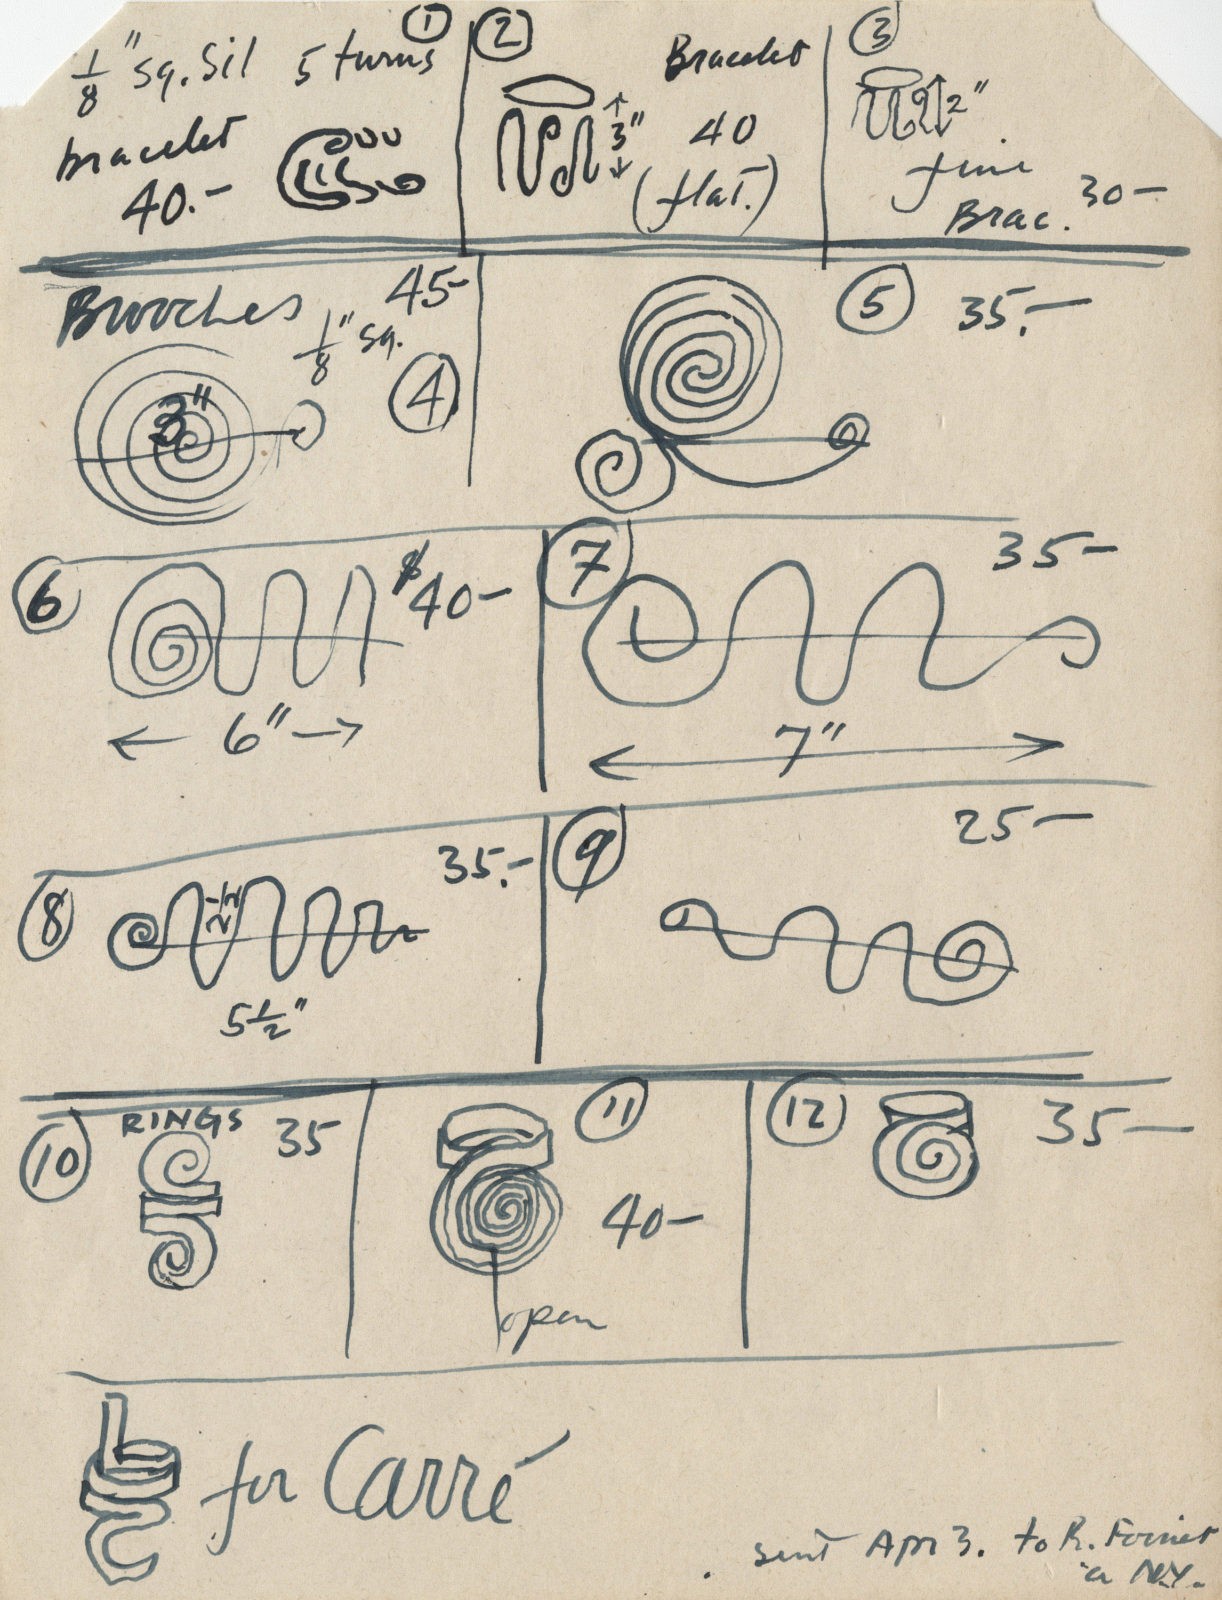 1/8" sq. Sil 5 turns ①
bracelet
40.-
② Bracelet
3"
40
(flat.)
③
2"
fine
Brac. 30-
Brooches 45-
1/8" sq.
④
3"
⑤ 35.-
⑥ $40-
6"
⑦ 35-
7"
⑧ 35.-
2 1/2
5 1/2"
⑨ 25-
⑩ RINGS 35
⑪
40-
open
⑫ 35-
for Carré
sent Apr 3. to R.
N.Y.